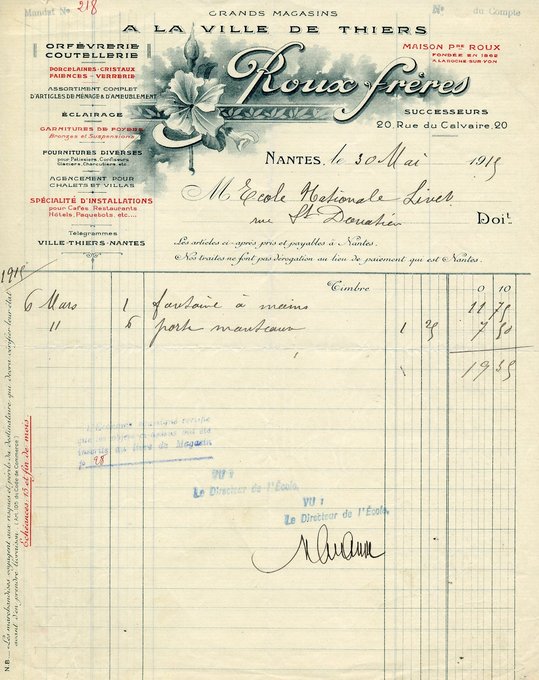 Mandat No 218
GRANDS MAGASINS
No du Compte
A LA VILLE DE THIERS
ORFÈVRERIE
COUTELLERIE
PORCELAINES-CRISTAUX
FAIENCES - VERRERIE
ASSORTIMENT COMPLET
D'ARTICLES DE MÉNAGE & D'AMEUBLEMENT
ÉCLAIRAGE
GARNITURES DE FOYERS
Bronzes et Suspensions
FOURNITURES DIVERSES
pour Pâtissiers, Confiseurs,
Glaciers, Charcutiers, etc.
AGENCEMENT POUR
CHALETS ET VILLAS
SPÉCIALITÉ D'INSTALLATIONS
pour Cafés, Restaurants
Hôtels, Paquebots, etc....
Télégrammes
VILLE-THIERS-NANTES
MAISON Pre ROUX
FONDÉE EN 1862
A LAROCHE-SUR-YON
Roux frères
SUCCESSEURS
20, Rue du Calvaire, 20
NANTES, le 30 Mai 1915
M Ecole Nationale Livet
rue St Donatien Doit
Les articles ci-après pris et payables à Nantes.
Nos traites ne font pas dérogation au lieu de paiement qui est Nantes.
1915
Timbre 0 10
6 Mars 1 fontaine à mains 11 75
11 6 porte manteaux 1 25 7 50
19 35
L'Économe soussigné certifie
que les objets ci-dessus ont été
inscrits au livre de Magasin
fo 98
VU :
Le Directeur de l'École,
VU :
Le Directeur de l'École,
Échéances 15 et fin de mois.
N.B. — Les marchandises voyagent aux risques et périls du destinataire qui devra vérifier leur état
avant d'en prendre livraison. (Art. 105 du Code de Commerce)